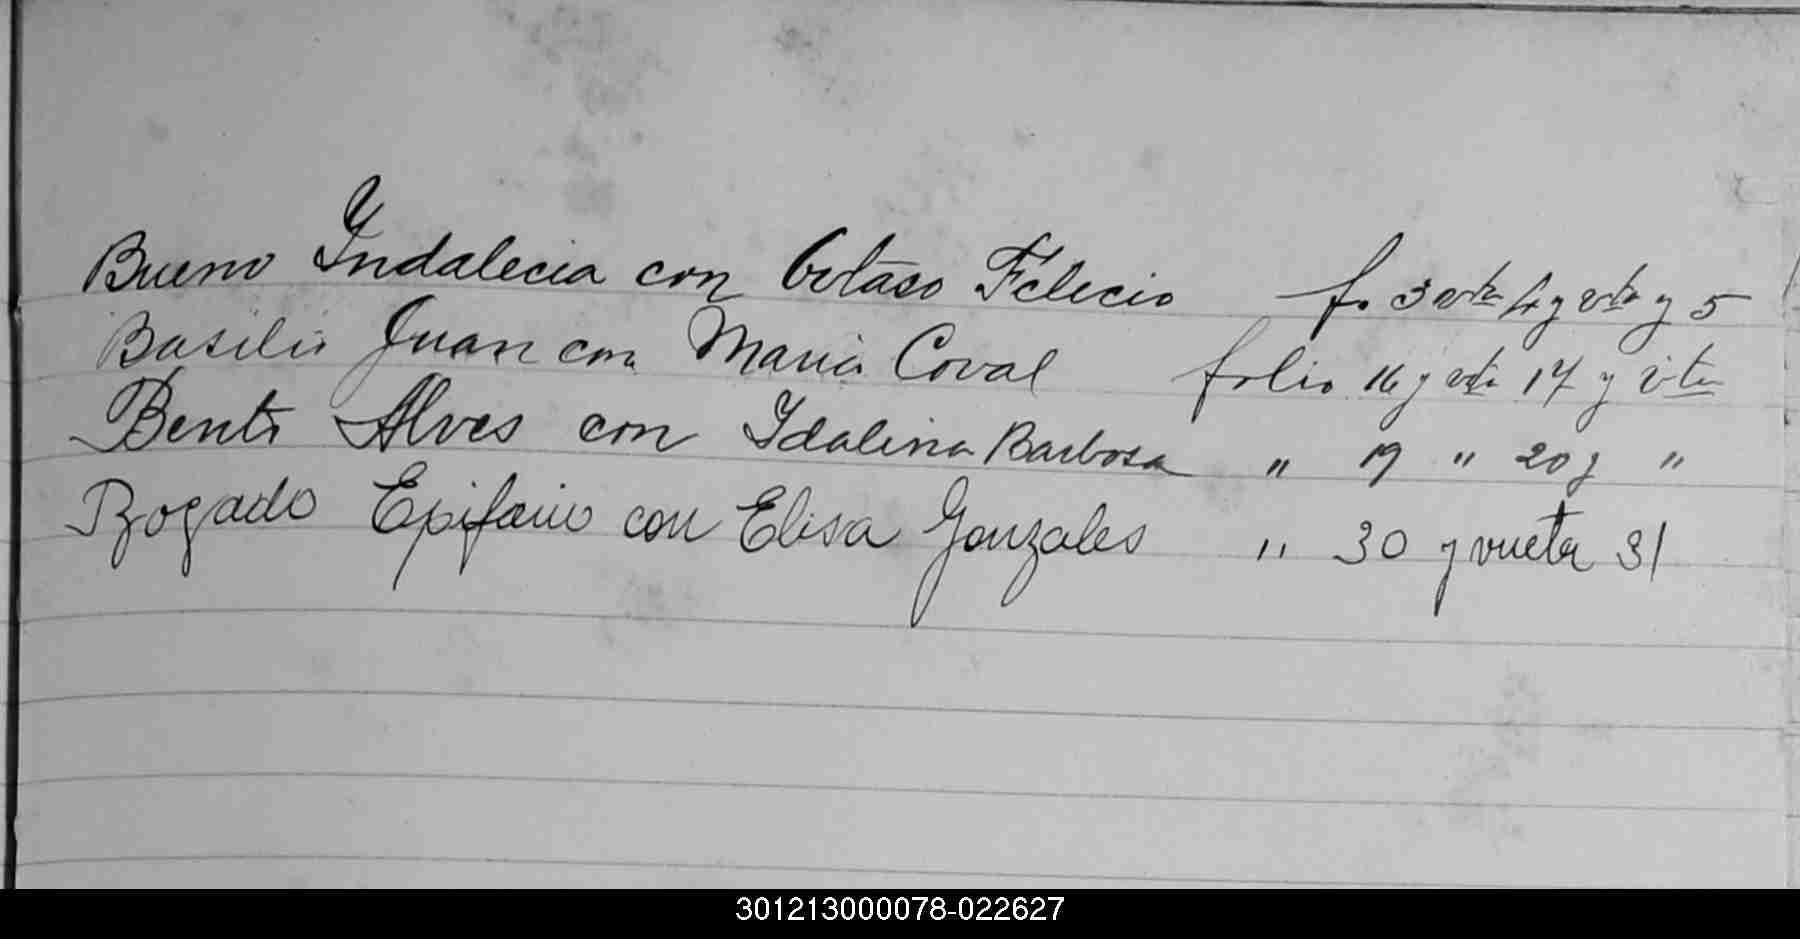 Bueno Yndalecia con Cetaso Felecio f. 3 vta 4 y vta y 5
Basilio Juan con Maria Coval folio 16 y vta 17 y vta
Bento Alves con Idalina Barbosa " 19 " 20 y "
Bogado Epifanio con Elisa Gonzales " 30 y vuelta 31
301213000078-022627